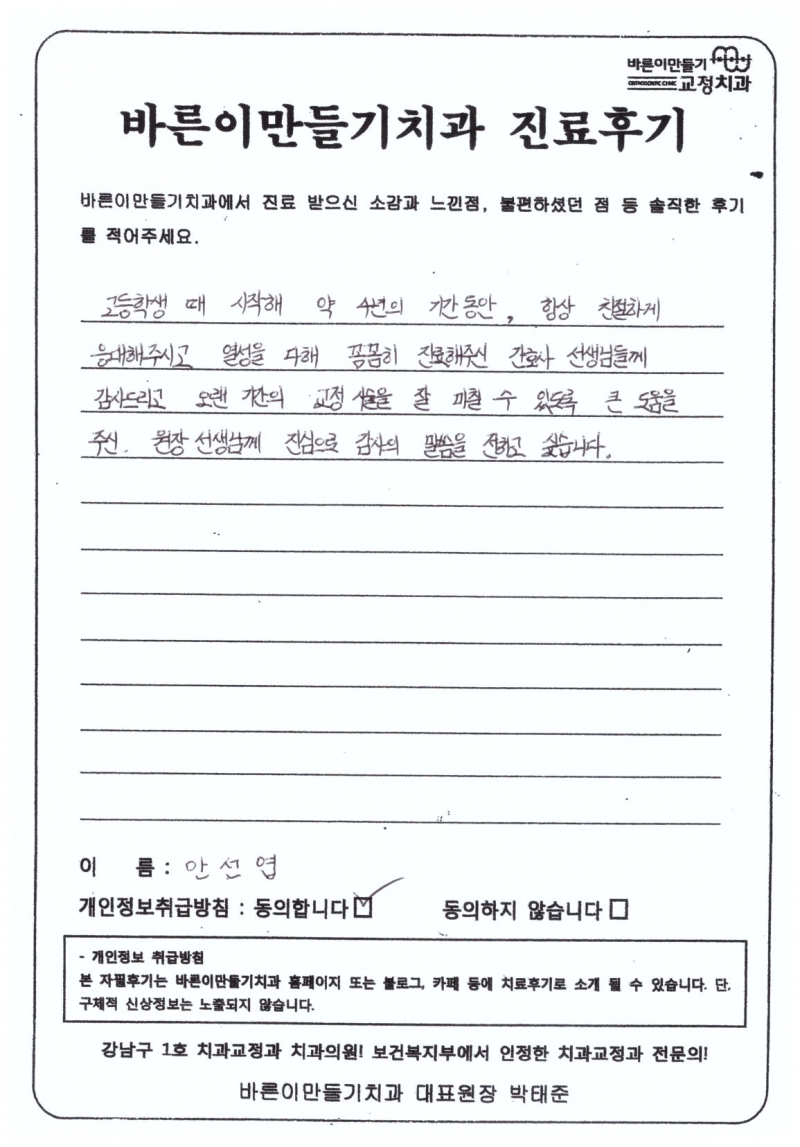 바른이만들기
ORTHODONTIC CLINIC 교정치과
바른이만들기치과 진료후기
바른이만들기치과에서 진료 받으신 소감과 느낀점, 불편하셨던 점 등 솔직한 후기
를 적어주세요.
고등학생 때 시작해 약 4년의 기간동안, 항상 친절하게
응대해주시고 열성을 다해 꼼꼼히 진료해주신 간호사 선생님들께
감사드리고 오랜 기간의 교정 시술을 잘 마칠 수 있도록 큰 도움을
주신. 원장 선생님께 진심으로 감사의 말씀을 전하고 싶습니다.
이 름 : 안선엽
개인정보취급방침 : 동의합니다 동의하지 않습니다
- 개인정보 취급방침
본 자필후기는 바른이만들기치과 홈페이지 또는 블로그, 카페 등에 치료후기로 소개 될 수 있습니다. 단,
구체적 신상정보는 노출되지 않습니다.
강남구 1호 치과교정과 치과의원! 보건복지부에서 인정한 치과교정과 전문의!
바른이만들기치과 대표원장 박태준